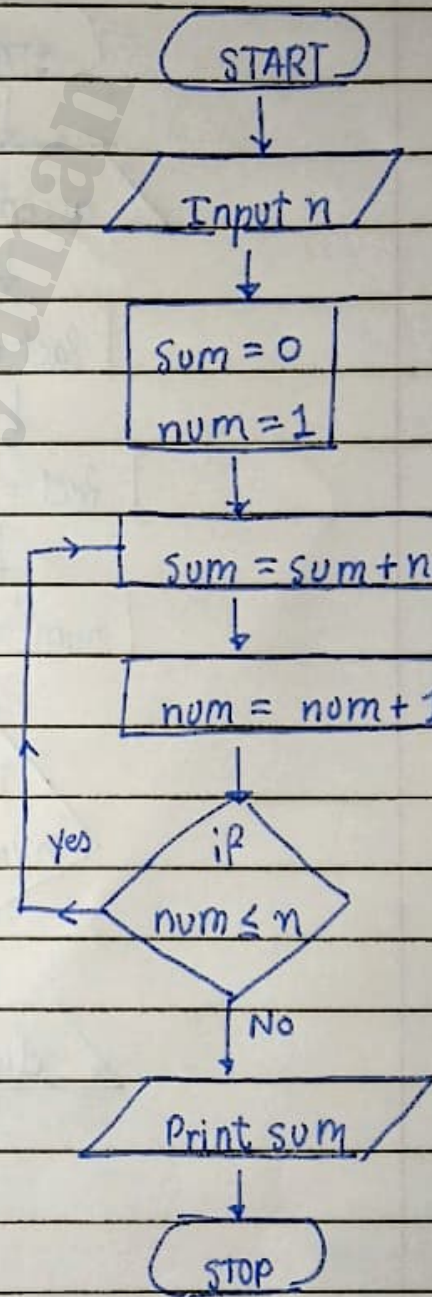 START
Input n
sum = 0
num = 1
sum = sum + n
num = num + 1
if
num ≤ n
yes
No
Print sum
STOP